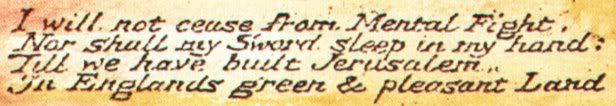 I will not cease from Mental Fight,
Nor shall my Sword sleep in my hand:
Till we have built Jerusalem,
In Englands green & pleasant Land